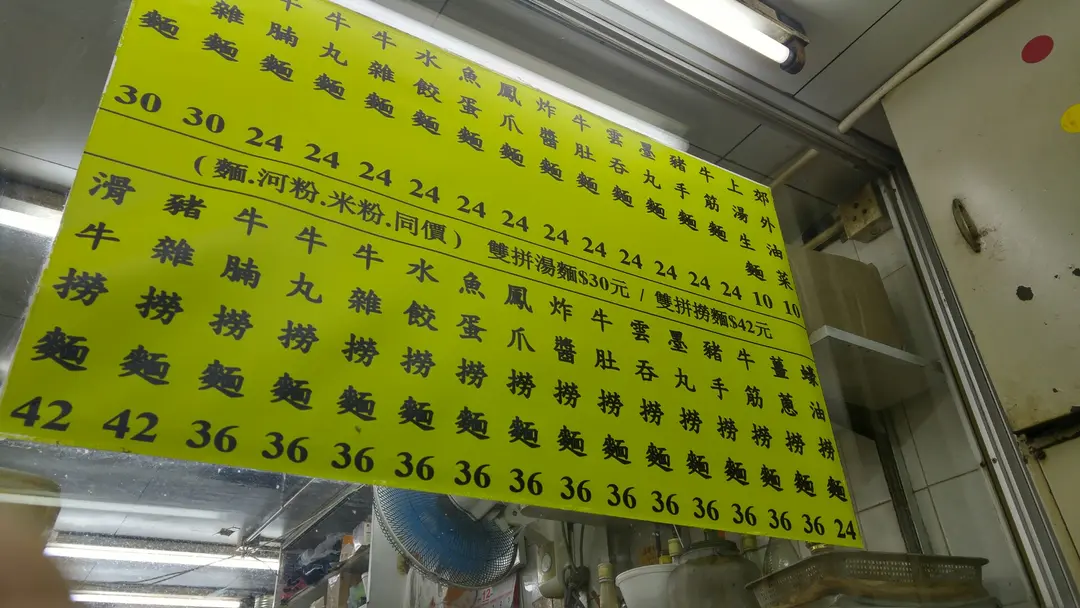 麵 30
雜麵 30
牛腩麵 24
牛丸麵 24
牛雜麵 24
水餃麵 24
魚蛋麵 24
鳳爪麵 24
炸醬麵 24
牛肚麵 24
雲吞麵 24
墨丸麵 24
豬手麵 24
牛筋麵 24
上湯生麵 10
郊外油菜 10
(麵.河粉.米粉.同價) 雙拼湯麵$30元 / 雙拼撈麵$42元
滑牛撈麵 42
豬雜撈麵 42
牛腩撈麵 36
牛丸撈麵 36
牛雜撈麵 36
水餃撈麵 36
魚蛋撈麵 36
鳳爪撈麵 36
炸醬撈麵 36
牛肚撈麵 36
雲吞撈麵 36
墨丸撈麵 36
豬手撈麵 36
牛筋撈麵 36
薑蔥撈麵 36
蠔油撈麵 24